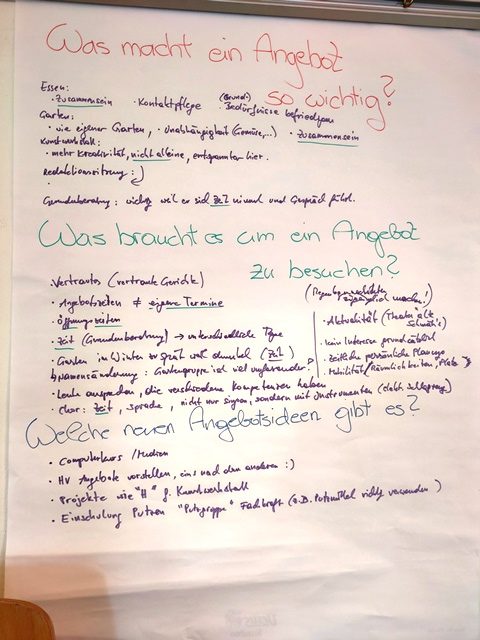 Was macht ein Angebot
so wichtig?
Essen:
· Zusammensein · Kontaktpflege (Grund-) · Bedürfnisse befriedigen
Garten:
· wie eigener Garten, · Unabhängigkeit (Gemüse,...) · Zusammensein
Kunstwerkstatt:
· mehr Kreativität, nicht alleine, entspannter hier.
Redaktionssitzung:
Gesundberatung: wichtig weil er sich Zeit nimmt und Gespräch führt.
Was braucht es um ein Angebot
zu besuchen?
· Vertrautes (vertraute Gesichter)
· Angebotszeiten ≠ eigene Termine
· Öffnungszeiten
· Zeit (Gesundberatung) → unterschiedliche Tage
· Garten im Winter zu spät weil dunkel (Zeit)
Namensänderung: Gartengruppe ist viel umfassender.
· Leute ansprechen, die verschiedene Kompetenzen haben
· Chor: Zeit, Sprache, nicht nur Singen, sondern mit Instrumenten
· Aktualität (Theater alte
· kein Interesse grundsätzlich
· Zeitliche persönliche Planung
· Mobilität/Räumlichkeiten/Platz
Welche neuen Angebotsideen gibt es?
· Computerkurs / Medien
· HV Angebote vorstellen, eins nach dem anderen :)
· Projekte wie "H" f. Kunstwerkstatt
· Einschulung Putzen "Putzgruppe" Fachkraft (z.B. Putzmittel richtig verwenden)